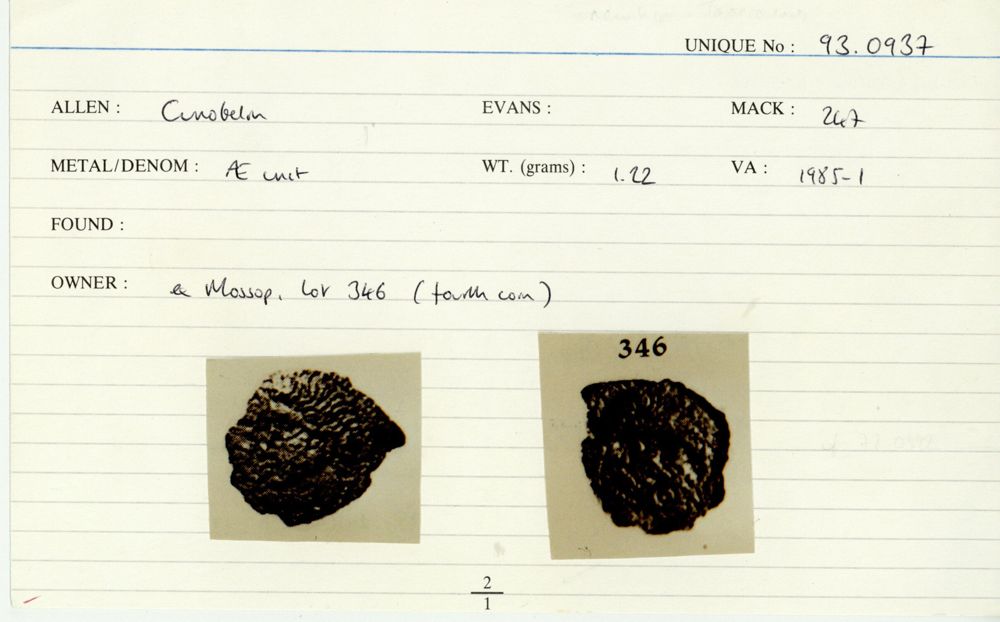 UNIQUE No : 93.0937
ALLEN : Cunobelin EVANS : MACK : 247
METAL/DENOM : Æ unit WT. (grams) : 1.22 VA : 1985-1
FOUND :
OWNER : ex Mossop, Lot 346 (fourth coin)
346
2
1